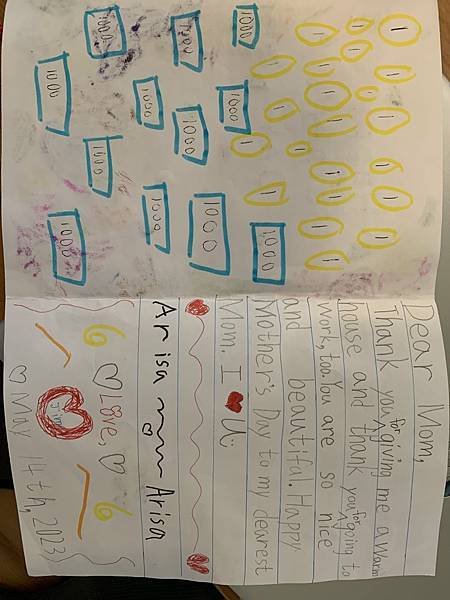 1 1 1 1 1 1
1 1 1
1 1 1 1 1 1 1 1
1 1 1 1 1
1000 1000 1000
1000 1000 1000
1000 1000
1000 1000
1000 1000
Dear Mom,
Thank you for giving me a warm
house and thank you for going to
work, too. You are so nice
and beautiful. Happy
Mother's Day to my dearest
Mom. I ♥ U
Arisa Arisa
♡ Love, ♡
6 6
♡ May 14th, 2023